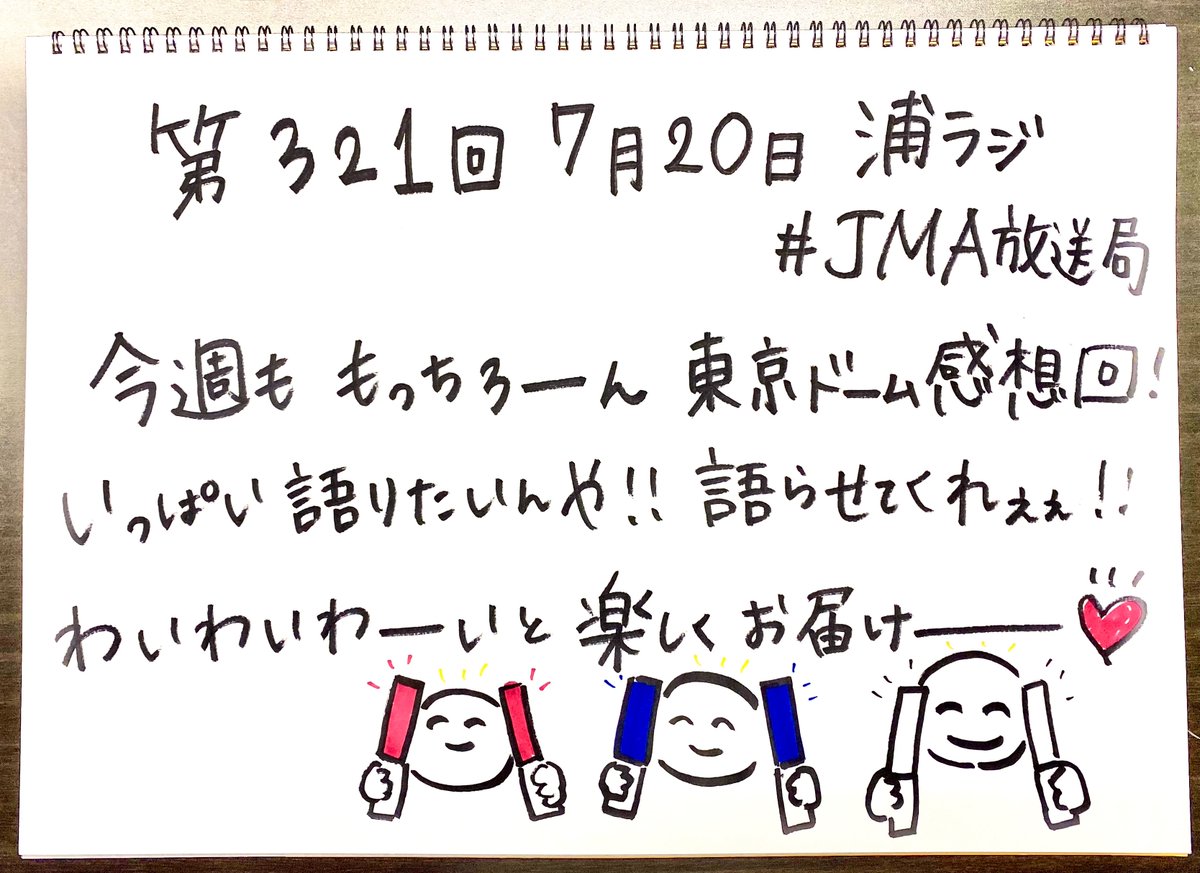 第321回 7月20日 浦ラジ
#JMA放送局
今週も もっちろーん 東京ドーム感想回!
いっぱい語りたいんや!! 語らせてくれぇぇ!!
わいわいわーいと 楽しくお届けー